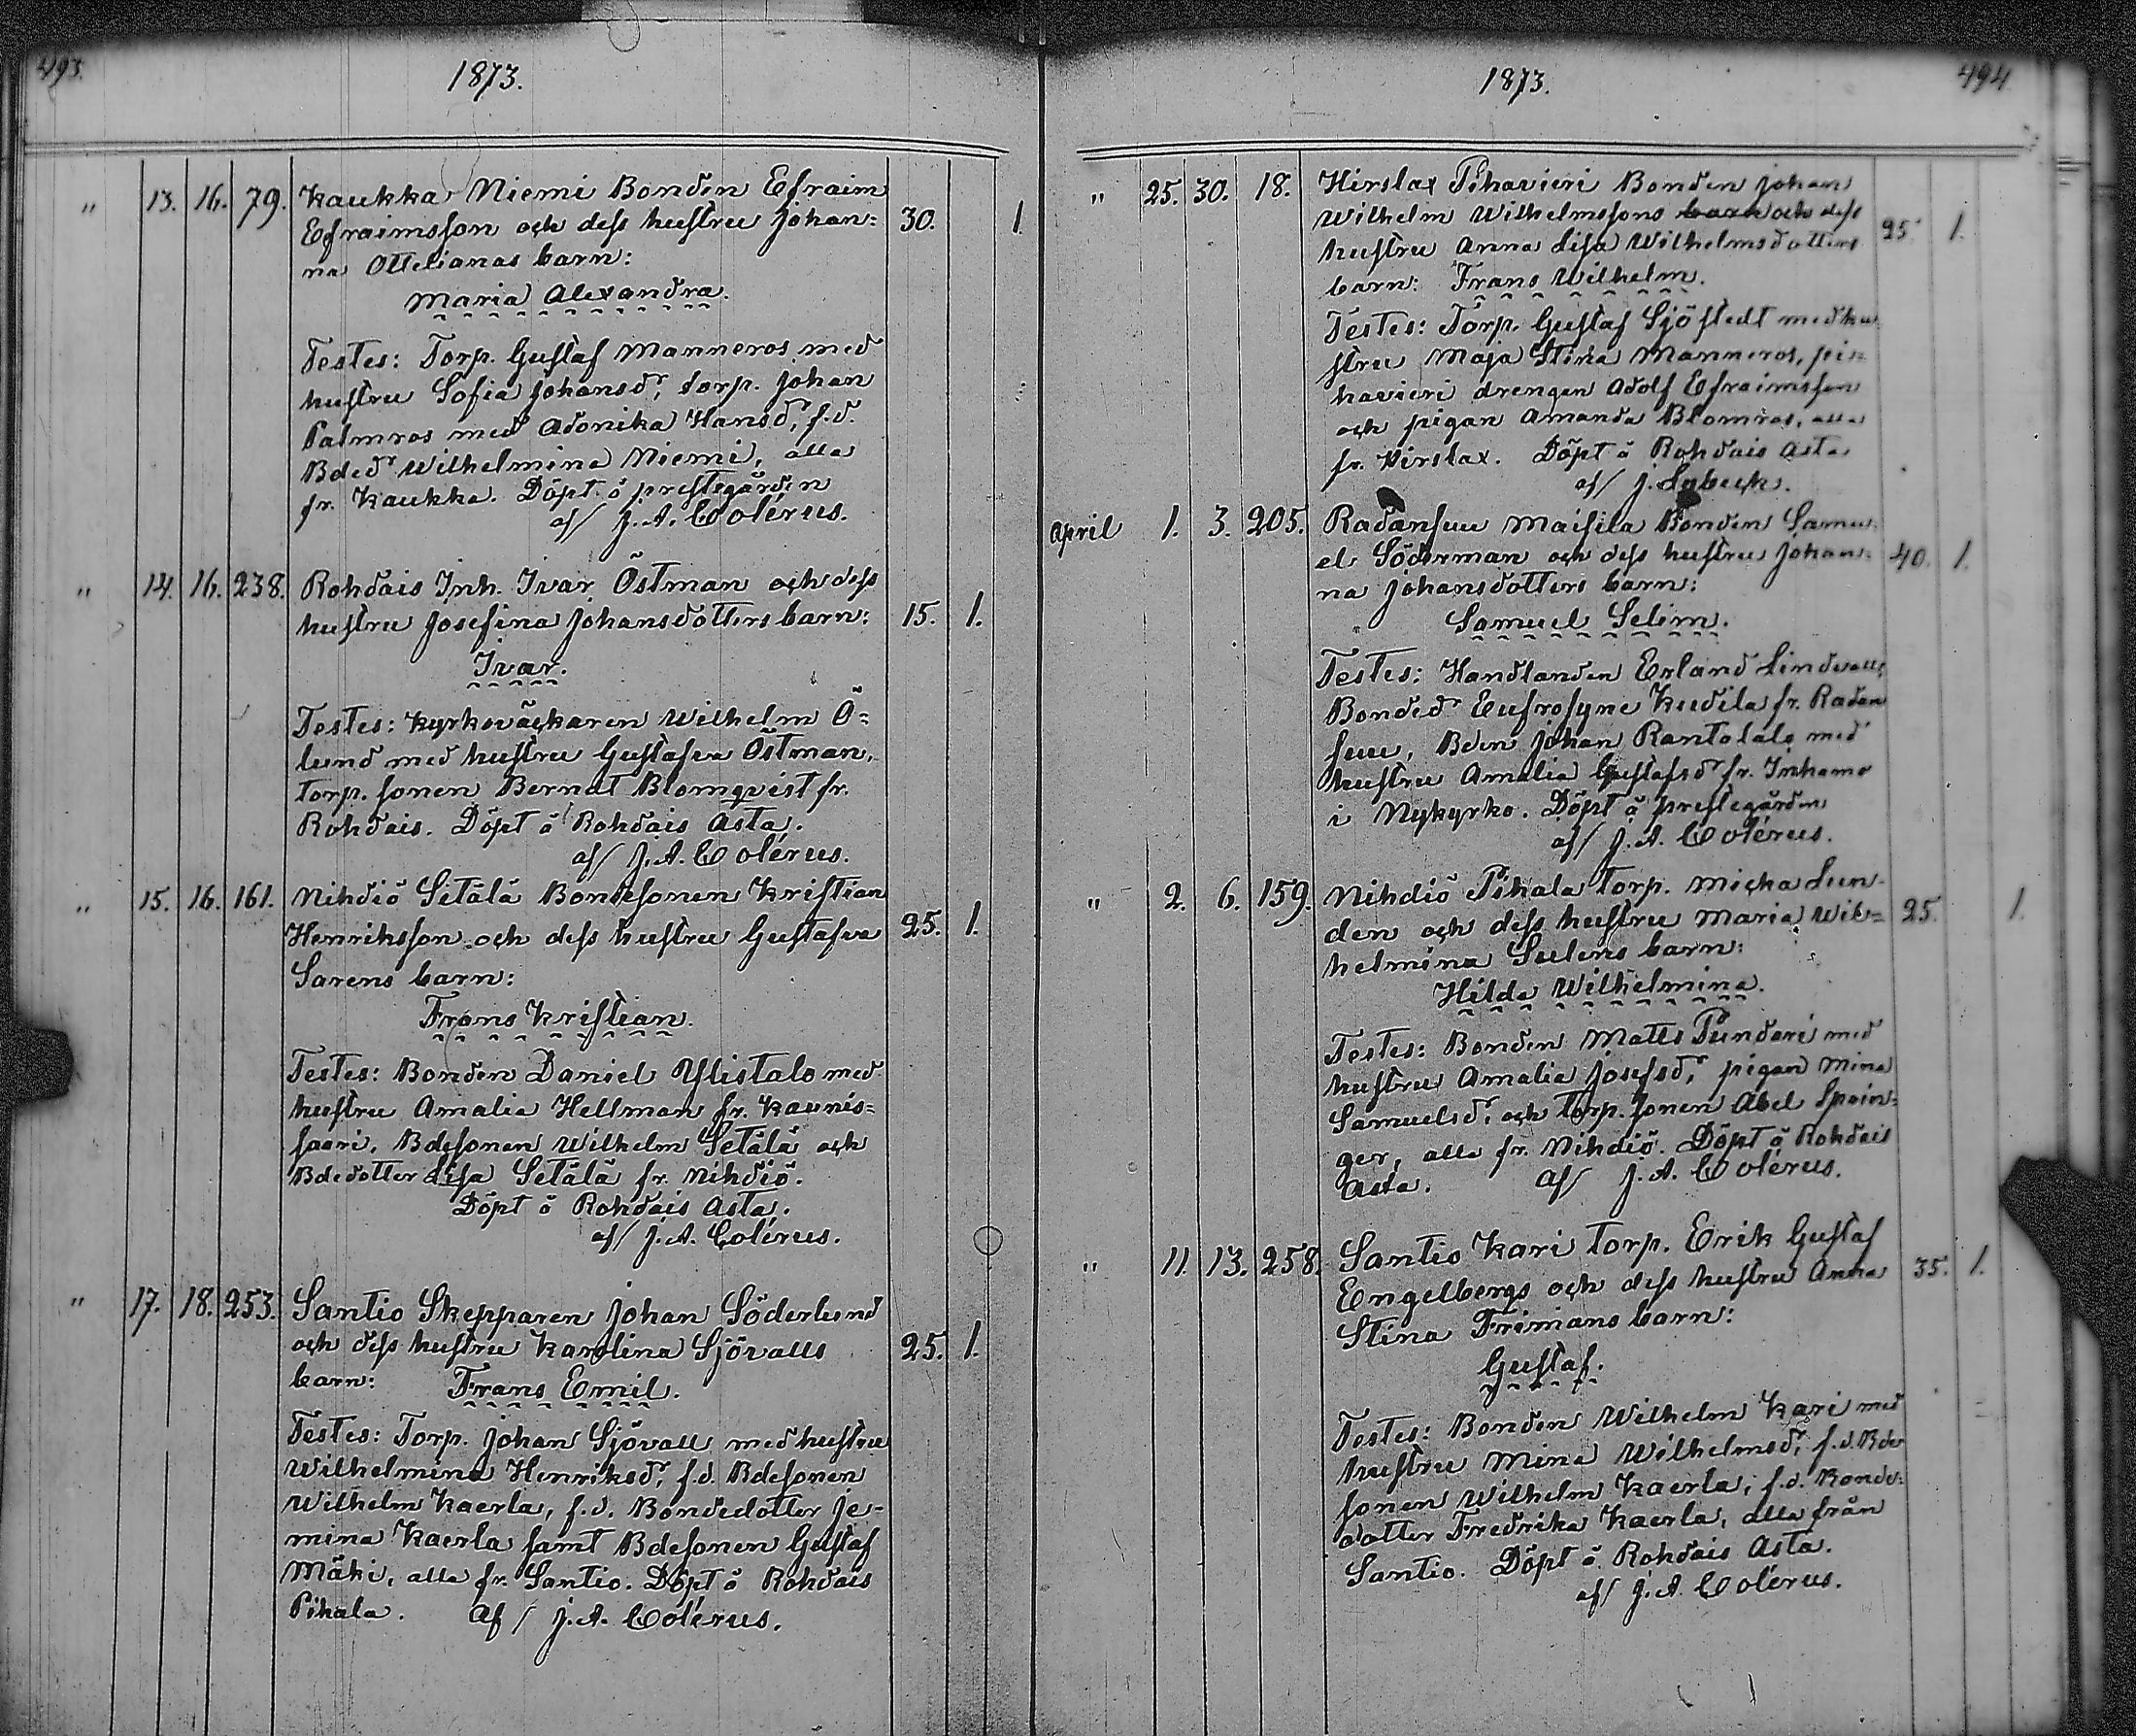 493.
1873.
" 13. 16. 79. Kaukka Niemi Bonden Efraim
Efraimsson och dess hustru Johan= 30. 1.
na Ottelianas barn:
Maria Alexandra.
Testes: Torp. Gustaf Manneros med
hustru Sofia Johansd:r, torp. Johan
Palmros med Adonika Hansd:r, f.d.
Bded:r Wilhelmina Niemi, alla
fr. Kaukka. Döpt å prestegården
af/ J. A. Colérus.
" 14. 16. 238. Rohdais Inh. Ivar Östman och dess
hustru Josefina Johansdotters barn: 15. 1.
Ivar.
Testes: Kyrkoväckaren Wilhelm Ö=
lund med hustru Gustafva Östman,
torp. sonen Bernat Blomqvist fr.
Rohdais. Döpt å Rohdais Asta.
af/ J. A. Colérus.
" 15. 16. 161. Nihdiö Setälä Bondesonen Kristian
Henriksson och dess hustru Gustafva 25. 1.
Sarens barn:
Frans Kristian.
Testes: Bonden Daniel Ylistalo med
hustru Amalia Hellman fr. Kaunis=
saari, Bdesonen Wilhelm Setälä och
Bdedotter Lisa Setälä fr. Nihdiö.
Döpt å Rohdais Asta.
af/ J. A. Colérus.
" 17. 18. 253. Santio Skepparen Johan Söderlund
och dess hustru Karolina Sjövalls 25. 1.
barn: Frans Emil.
Testes: Torp. Johan Sjövall med hustru
Wilhelmina Henriksd:r, f.d. Bdesonen
Wilhelm Kaerla, f.d. Bondedotter Je=
mina Kaerla samt Bdesonen Gustaf
Mäki, alla fr. Santio. Döpt å Rohdais
Pihala. Af / J. A. Colérus.
1873.
494
" 25. 30. 18. Hirslax Pihavieri Bonden Johan
Wilhelm Wilhelmssons barn och dess
hustru Anna Lisa Wilhelmsdotters 25. 1.
barn: Frans Wilhelm.
Testes: Torp. Gustaf Sjöstedt med hu
stru Maja Stina Manneros, pi=
havieri drengen Adolf Efraimsson
och pigan Amanda Blomros, alla
fr. Hirslax. Döpt å Rohdais Asta
af/ J. Lybeck.
April 1. 3. 205. Radansuu Maisila Bonden Samu=
el Söderman och dess hustru Johan= 40. 1.
na Johansdotters barn:
Samuel Selim.
Testes: Handlanden Erland Lindvall,
Bonded:r Eufrosyne Kudila fr. Radan
suu, Bden Johan Rantolalo med
hustru Amalia Gustafsd:r fr. Inhama
i Nykyrko. Döpt å prestegården
af/ J. A. Colérus.
" 2. 6. 159. Nihdiö Pihala Torp. Micka Lun=
den och dess hustru Maria Wil= 25. 1.
helmina Sulens barn:
Hilda Wilhelmina.
Testes: Bonden Matts Pundari med
hustru Amalia Josefsd:r, pigan Mina
Samuelsd:r och Torp. sonen Abel Sprin=
ger, alla fr. Nihdiö. Döpt å Rohdais
Asta. Af/ J. A. Colérus.
" 11. 13. 258. Santio Kari Torp. Erik Gustaf
Engelbergs och dess hustru Anna 35. 1.
Stina Frimans barn:
Gustaf.
Testes: Bonden Wilhelm Kari med
hustru Mina Wilhelmsd:r, f.d. Bde
sonen Wilhelm Kaerla, f.d. Bonde=
dotter Fredrika Kaerla, alla från
Santio. Döpt å Rohdais Asta.
af/ J. A. Colérus.